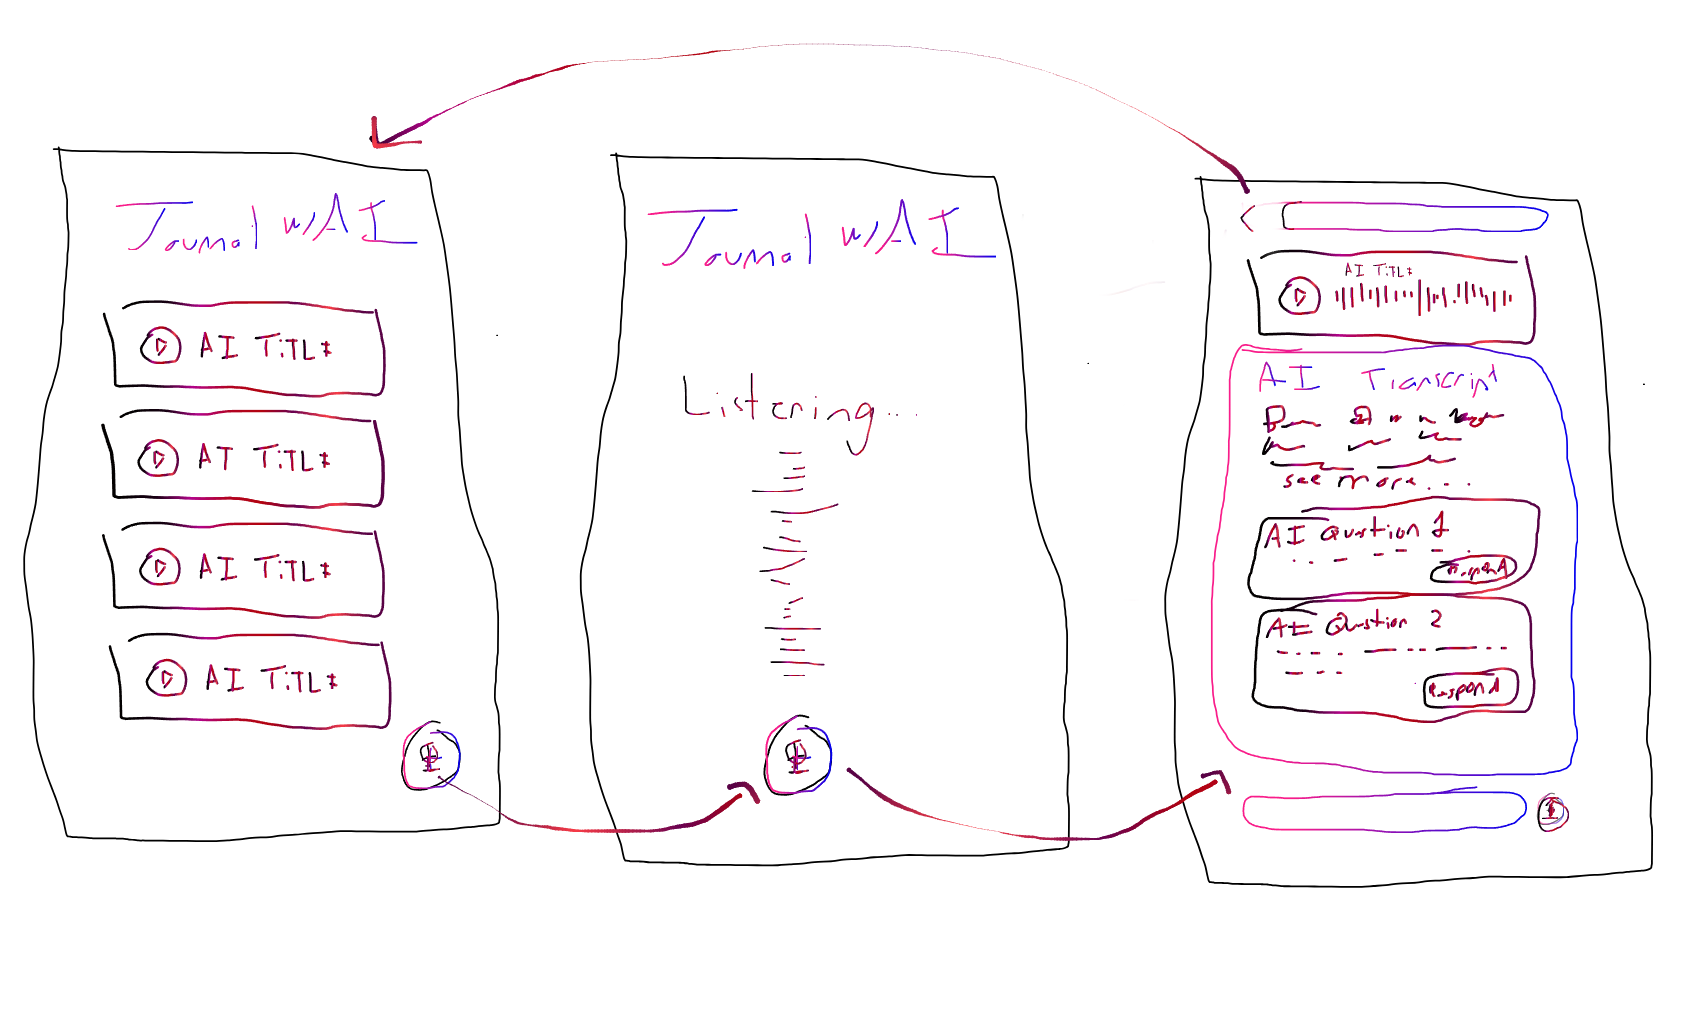 Journal w/AI
AI TiTLE
AI TiTLE
AI TiTLE
AI TiTLE
Journal w/AI
Listening...
AI TiTLE
AI Transcript
see more...
AI Question 1
Respond
AI Question 2
Respond